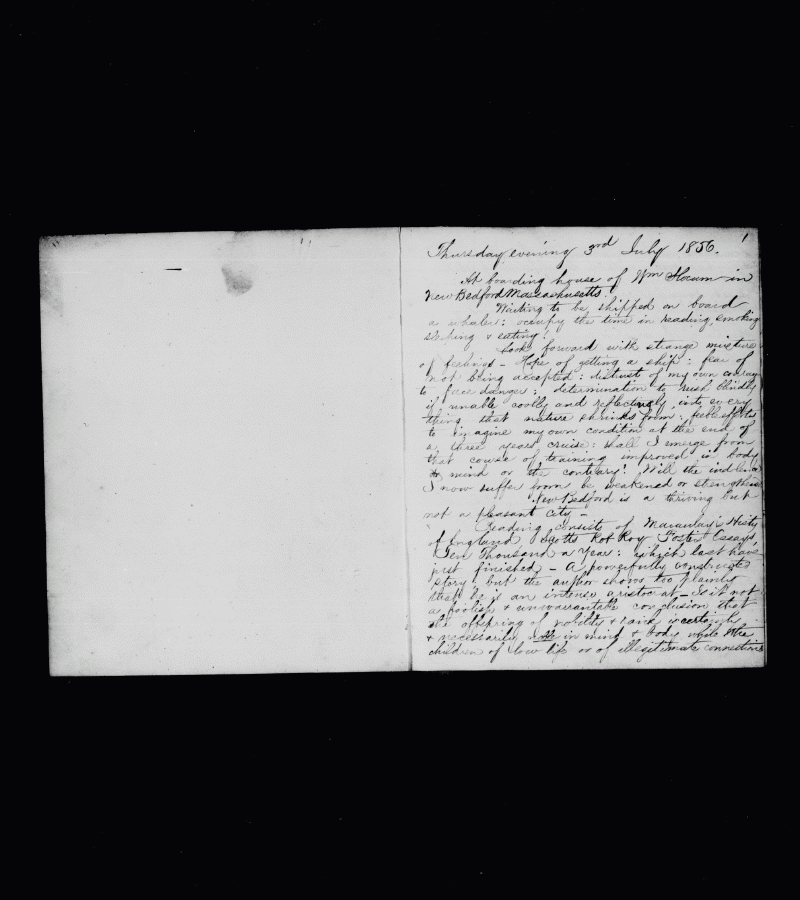 1
Thursday evening 3rd July 1856.
At boarding house of Wm Slocum in
New Bedford Massachusetts
Waiting to be shipped on board
a whaler: occupy the time in reading, smoking
sleeping & eating!
Look forward with strange mixture
of feelings – Hope of getting a ship: fear of
not being accepted: distrust of my own courage
to face danger: determination to rush blindly
if unable coolly and reflectingly into every
thing that nature shrinks from: feeble efforts
to imagine my own condition at the end of
a three years cruise: shall I emerge from
that course of training improved in body
& mind or the contrary? Will the
I now suffer from be weakened or strengthened
New Bedford is a thriving but
not a pleasant city –
Reading consists of Macaulay's Histy
of England, Scotts Rob Roy Foster Essays
Ten Thousand a Year: which last have
just finished – A powerfully constructed
story, but the author shows too plainly
that he is an intense aristocrat – Is it not
a foolish & unwarrantable conclusion that
the offspring of nobility & rank is certainly
& necessarily noble in mind & body while the
children of low life or of illegitimate connections